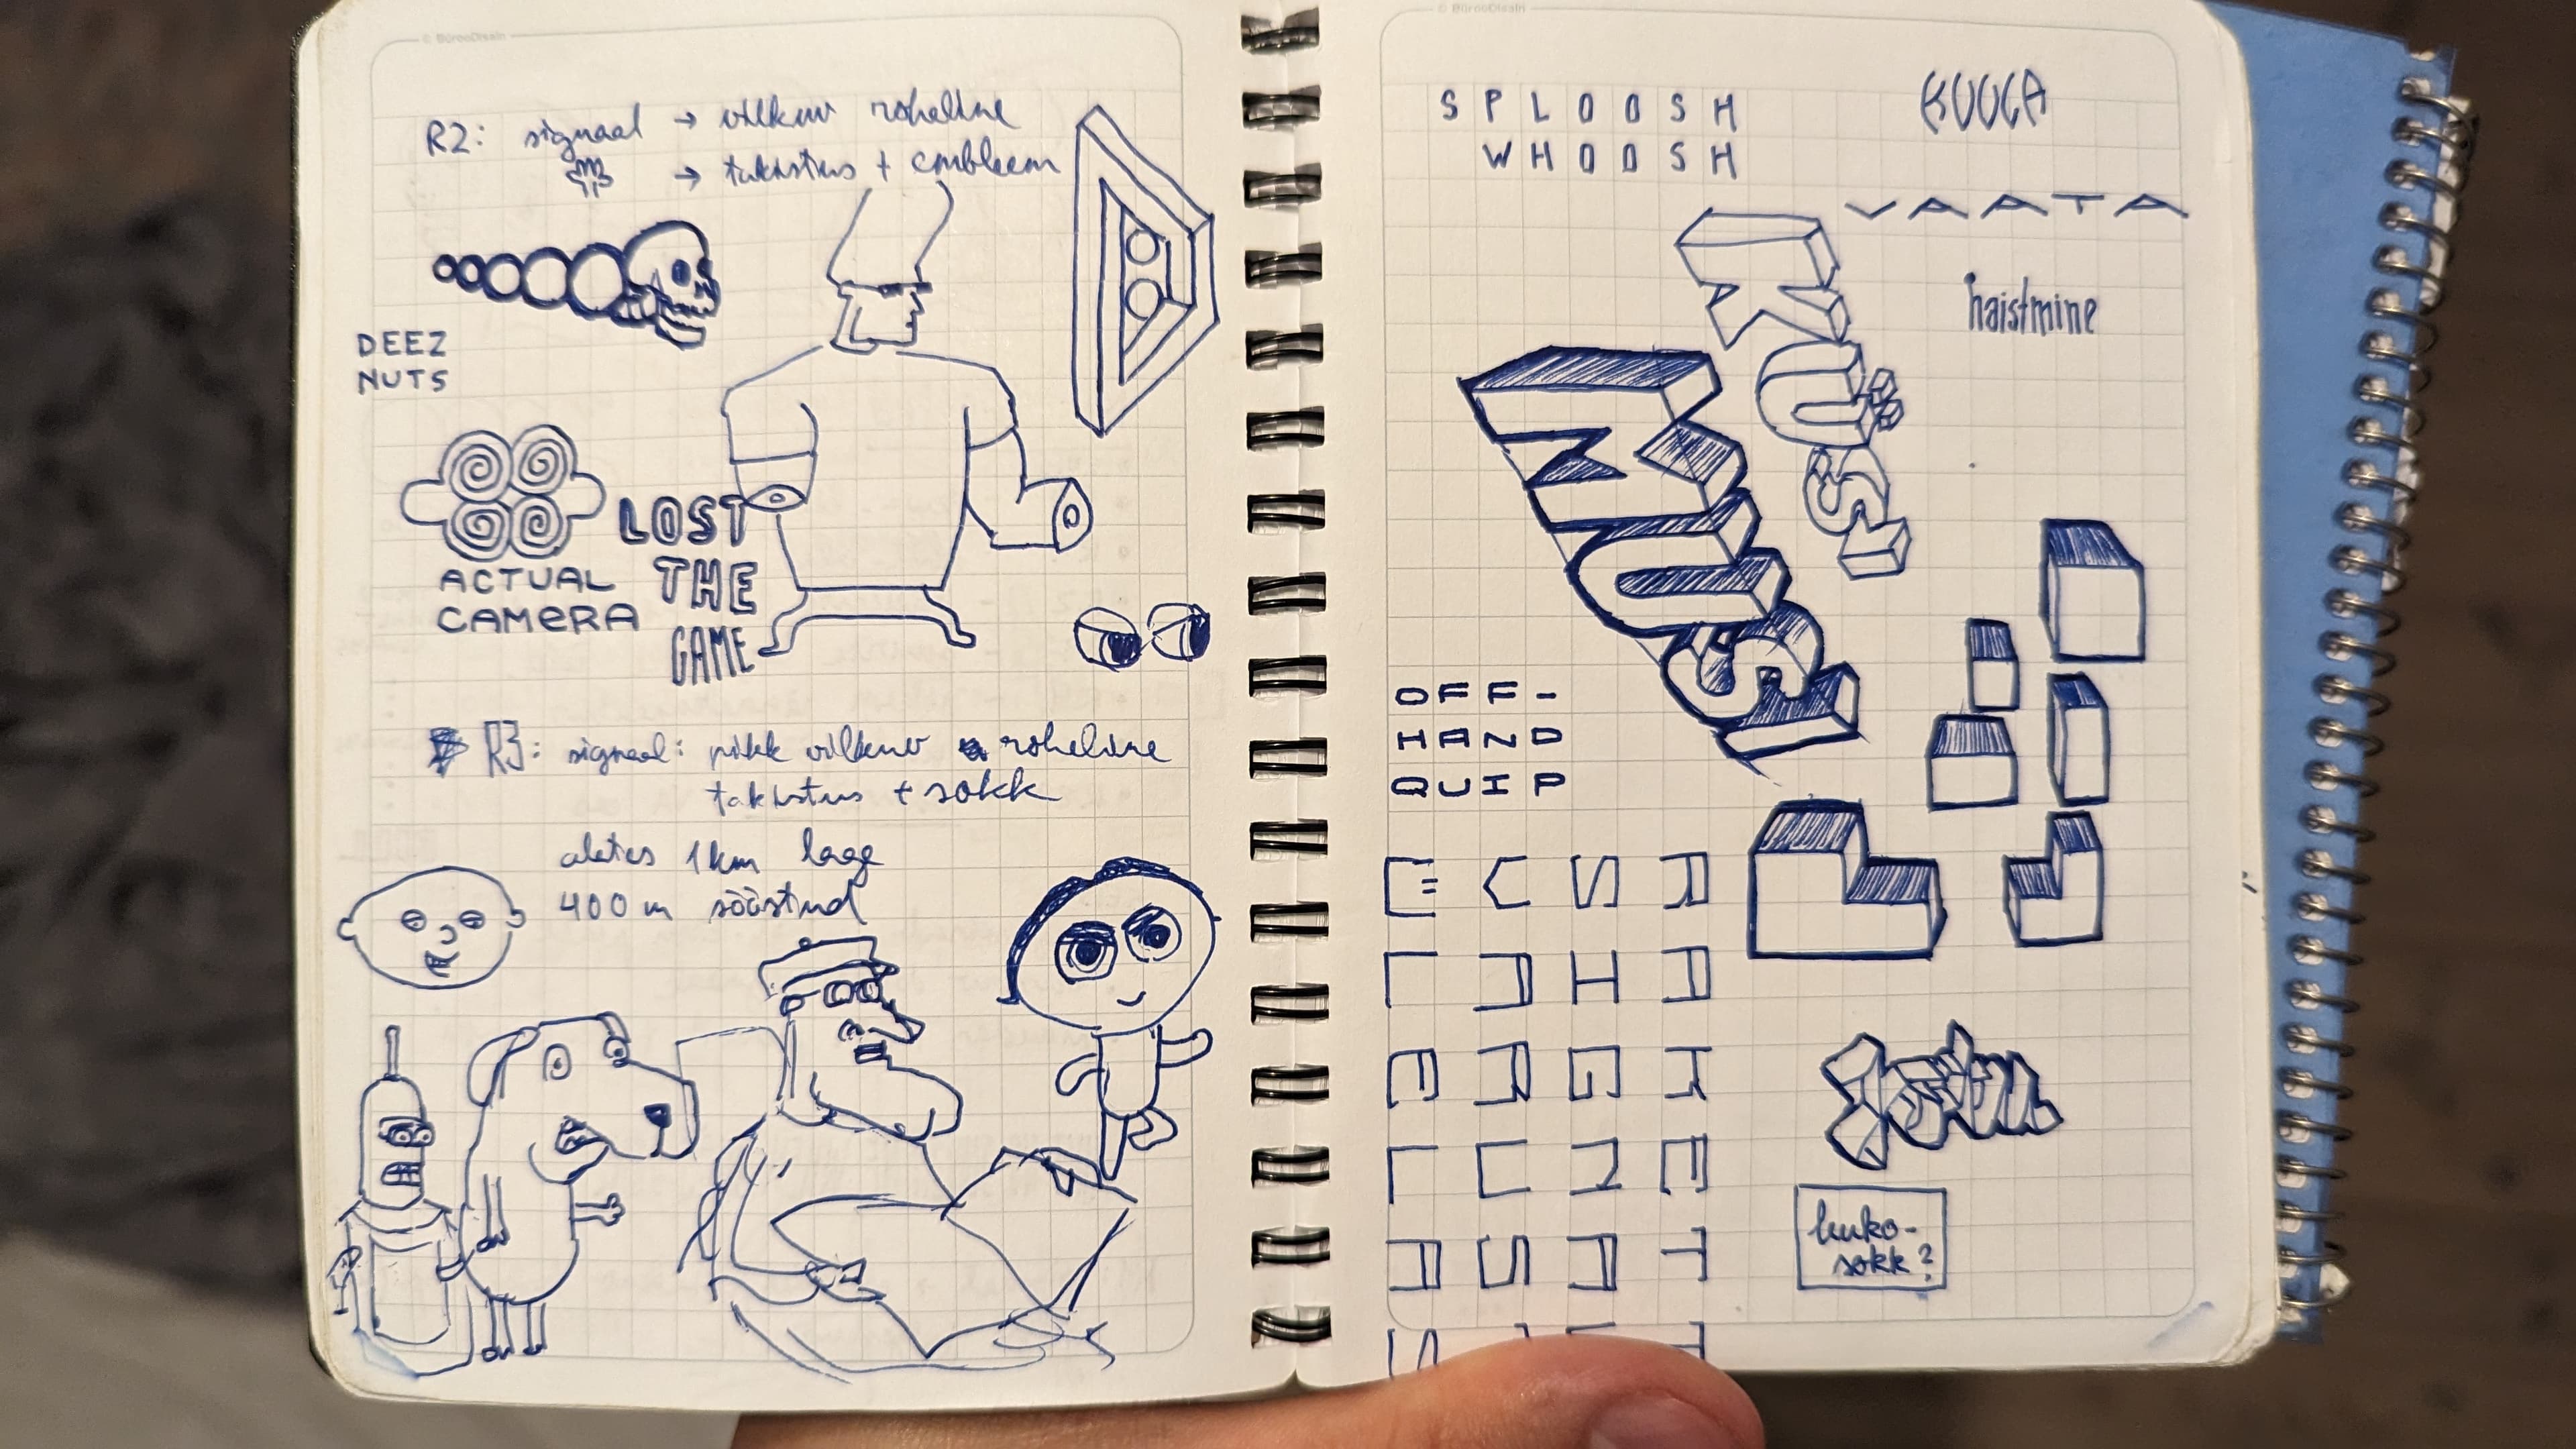 © BürooDisain
R2: signaal → vilkuv roheline
→ takistus + embleem
DEEZ
NUTS
ACTUAL
CAMERA
LOST
THE
GAME
R3: signaal: pikk vilkuv roheline
takistus + sokk
alates 1km lage
400m sööstud
© BürooDisain
SPLOOSH
WHOOSH
KUUGA
VAATA
haistmine
KUSI
MUSI
OFF-
HAND
QUIP
RAKETT
SHGNA
ELELAS
kuko-
sokk?